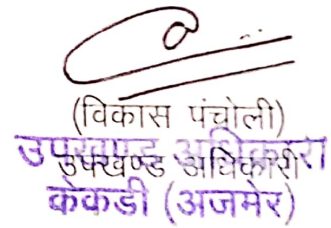 (विकास पंचोली)
उपखण्ड अधिकारी
उपखण्ड अधिकारी
केकडी (अजमेर)